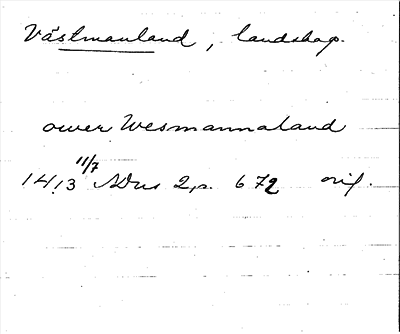 Västmanland, landskap.
ower Wesmannaland
1413 11/7 SDns 2, s. 672 orig.